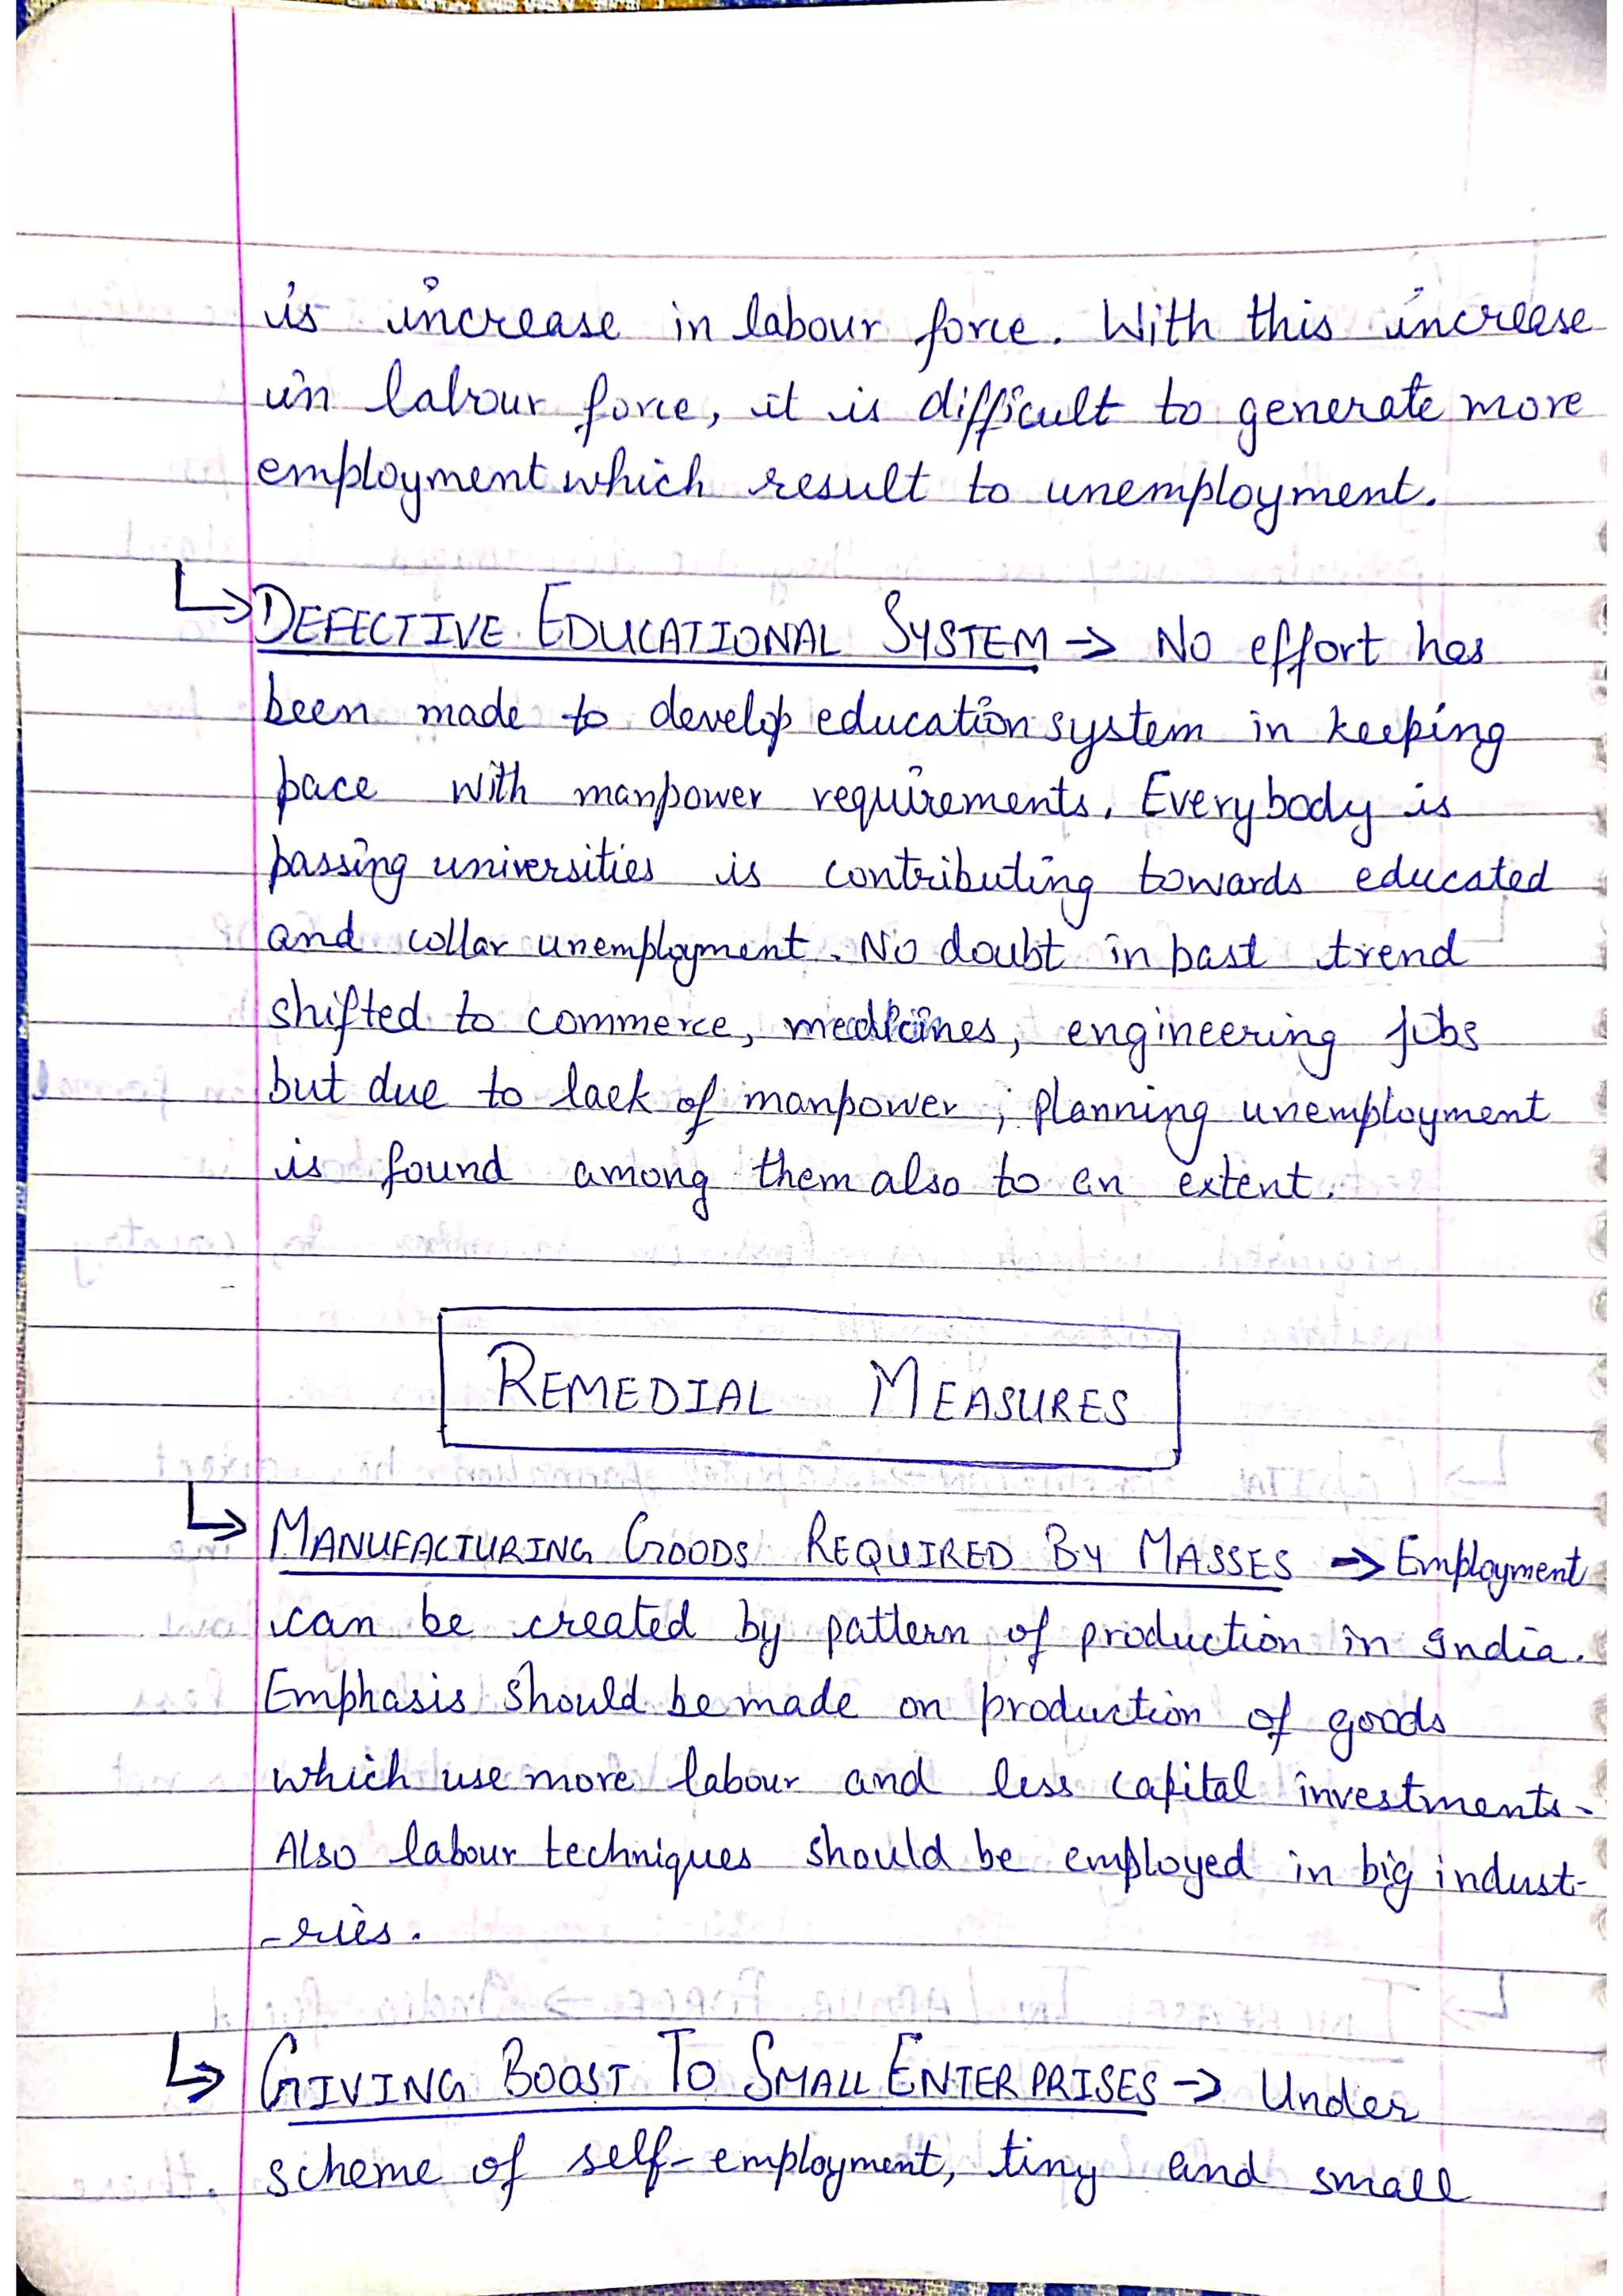 is increase in labour force. With this increase
in labour force, it is difficult to generate more
employment which result to unemployment.
↳ DEFECTIVE EDUCATIONAL SYSTEM → No effort has
been made to develop education system in keeping
pace with manpower requirements. Everybody is
passing universities is contributing towards educated
and collar unemployment. No doubt in past trend
shifted to commerce, medicines, engineering jobs
but due to lack of manpower, planning unemployment
is found among them also to an extent.
REMEDIAL MEASURES
↳ MANUFACTURING GOODS REQUIRED BY MASSES → Employment
can be created by pattern of production in India.
Emphasis should be made on production of goods
which use more labour and less capital investments.
Also labour techniques should be employed in big indust-
-ries.
↳ GIVING BOOST TO SMALL ENTERPRISES → Under
scheme of self-employment, tiny and small